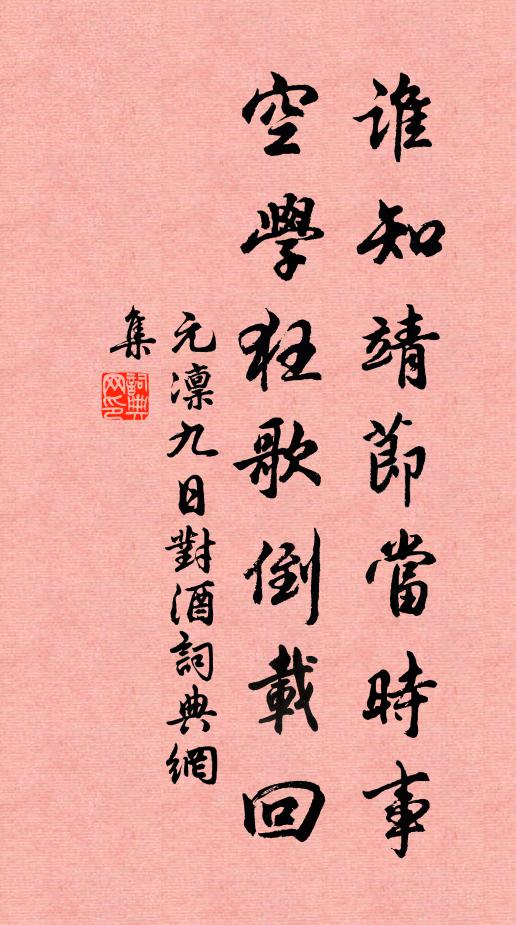 誰知靖節當時事
空學狂歌倒載回
元凛九日對酒詞典網
集
詞典網印